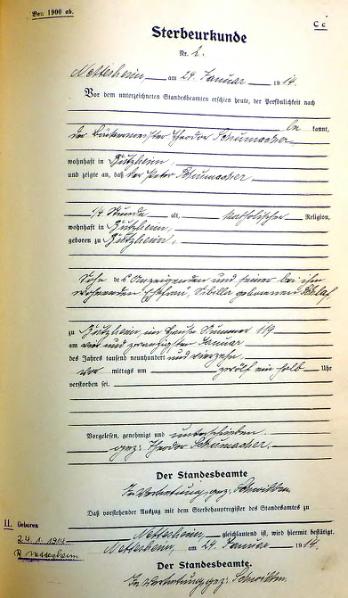 Von 1900 ab.
C c
Sterbeurkunde
Nr. 2.
Nettesheim, am 29. Januar 1914.
Vor dem unterzeichneten Standesbeamten erschien heute, der Persönlichkeit nach
be kannt,
der Bäckermeister Theodor Schumacher
wohnhaft in Bützheim,
und zeigte an, daß der Peter Schumacher
1/4 Stunde alt, katholischer Religion,
wohnhaft in Bützheim,
geboren zu Bützheim,
Sohn des Anzeigenden und seiner bei ihm
wohnenden Ehefrau, Sibilla geborenen
zu Bützheim im Hause Nummer 119
am vier und zwanzigsten Januar
des Jahres tausend neunhundert und vierzehn
vor mittags um zwölf ein halb Uhr
verstorben sei.
Vorgelesen, genehmigt und unterschrieben
gez: Theodor Schumacher.
Der Standesbeamte
In Vertretung gez:
Daß vorstehender Auszug mit dem Sterbehauptregister des Standesamts zu
Nettesheim gleichlautend ist, wird hiermit bestätigt.
Nettesheim, am 29. Januar 1914.
Der Standesbeamte.
In Vertretung gez:
II. Geboren
24.1.1914
Nettesheim